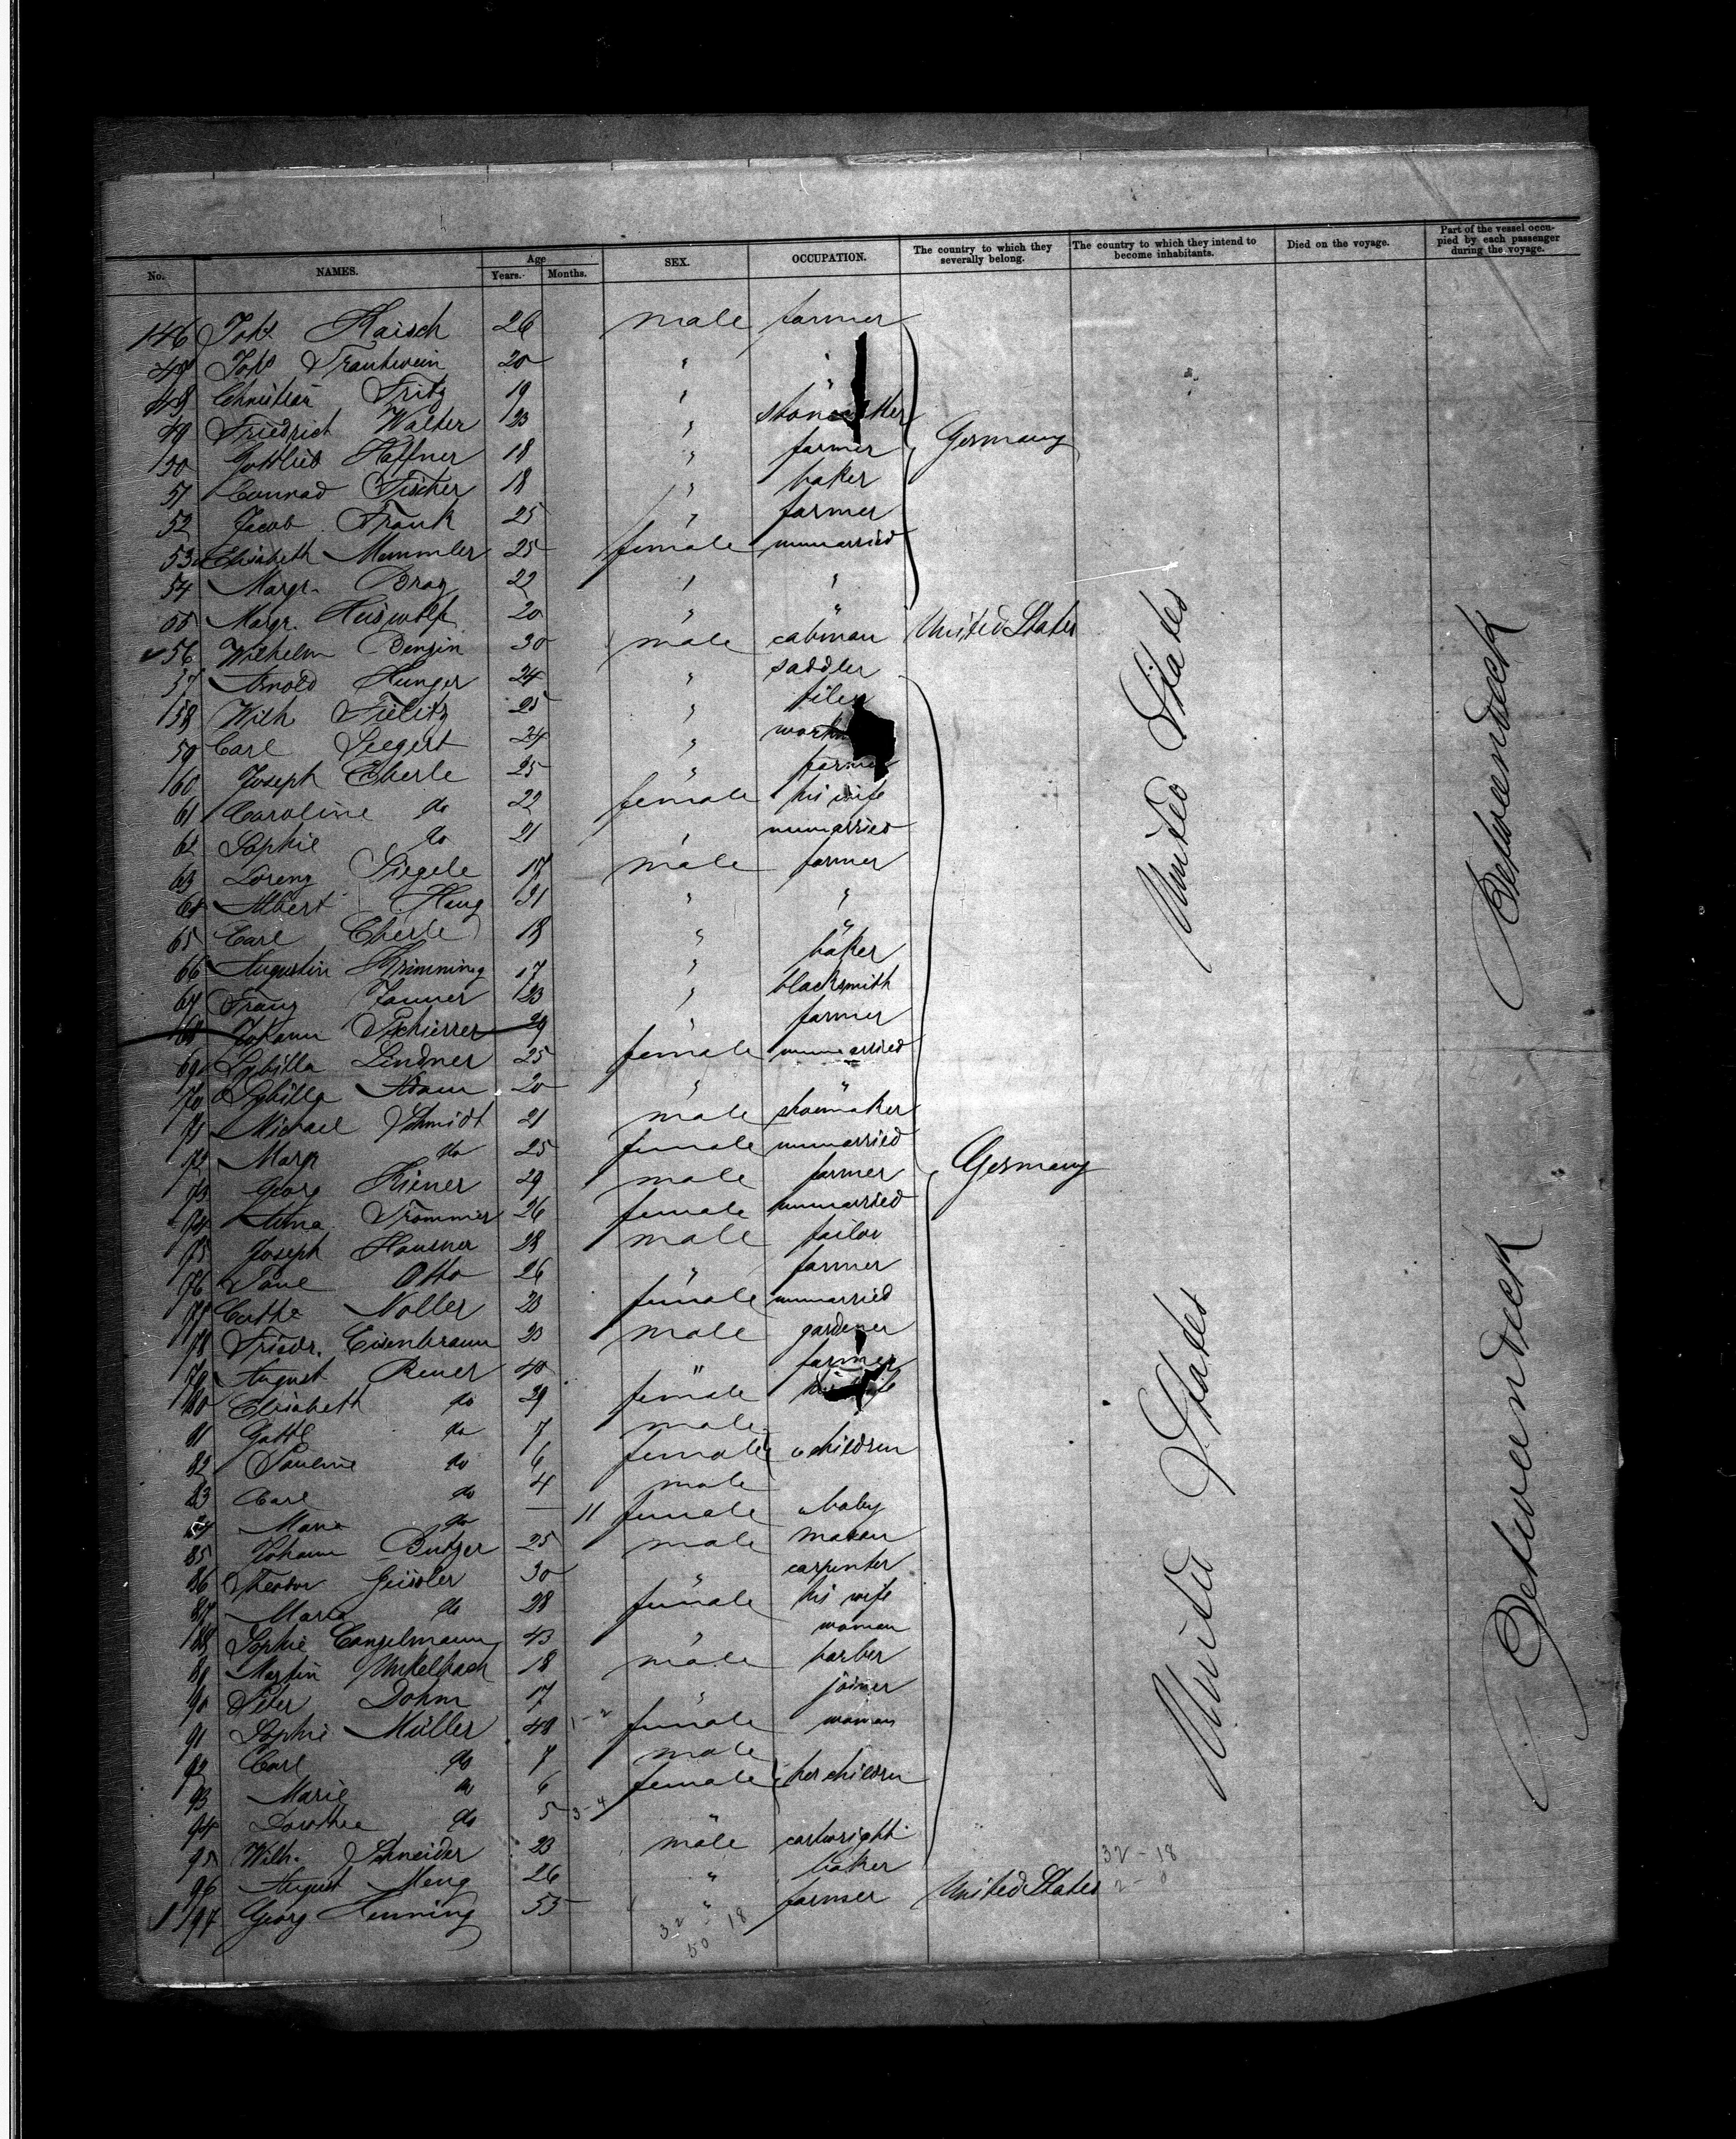 No. NAMES. Age Years. Months. SEX. OCCUPATION. The country to which they severally belong. The country to which they intend to become inhabitants. Died on the voyage. Part of the vessel occupied by each passenger during the voyage.
146 Joh Raisch 26 male farmer
Joh Trautwein 20 " "
48 Christian Fritz 19 " "
49 Friedrich Walter 23 "
150 Gottlieb Haffner 18 " farmer Germany
51 Conrad Fischer 18 " baker
52 Jacob Frank 25 " farmer
53 Elisabeth Memmler 25 female unmarried
54 Margr. Bray 22 " "
55 Margr. 20 " "
56 Wilhelm Benzin 30 male cabman United States
57 Arnold Hunger 24 " saddler
158 Wilh Fielitz 25 "
59 Carl Seegert 24 "
160 Joseph Eberle 25 " farmer
61 Caroline do 22 female his wife
62 Sophie do 21 " unmarried
63 Lorenz Siegele 17 male farmer
64 Albert Haug 21 " "
65 Carl Eberle 18 " "
66 Augustin Krimming 17 " baker
67 Franz Janner 23 " blacksmith
68 Johann 29 " farmer
69 Sybilla Lindner 25 female unmarried
70 Sybilla Adam 20 " "
71 Michael Schmidt 21 male shoemaker
72 Margr do 25 female unmarried
73 Georg Kiener 29 male farmer Germany
74 Anna Trommer 26 female unmarried
75 Joseph Hausner 28 male tailor
76 Paul Otto 26 " farmer
77 Cathe Noller 23 female unmarried
78 Friedr. Eisenbraun 23 male gardener
79 August Beuer 40 " farmer
180 Elisabeth do 29 female his wife
81 Gottl do 7 male
82 Pauline do 6 female children
83 Carl do 4 male
84 Maria do — 11 female baby
85 Johann Butzer 25 male
86 Theodor Geissler 30 " carpenter
87 Maria do 28 female his wife
188 Sophie Canzelmann 43 " woman
89 Martin Unkelbach 18 male barber
90 Peter Dohm 17 " joiner
91 Sophie Müller 48 1-2 female woman
92 Carl do 7 male
93 Marie do 6 female her children
94 Dorothea do 5 3-4 "
95 Wilh. Schneider 23 male cartwright
96 August Meng 26 " baker
197 Georg Henning 53 " farmer United States
32 - 18
2 - 0
32 - 18
50
United States
United States
Betweendeck
Betweendeck